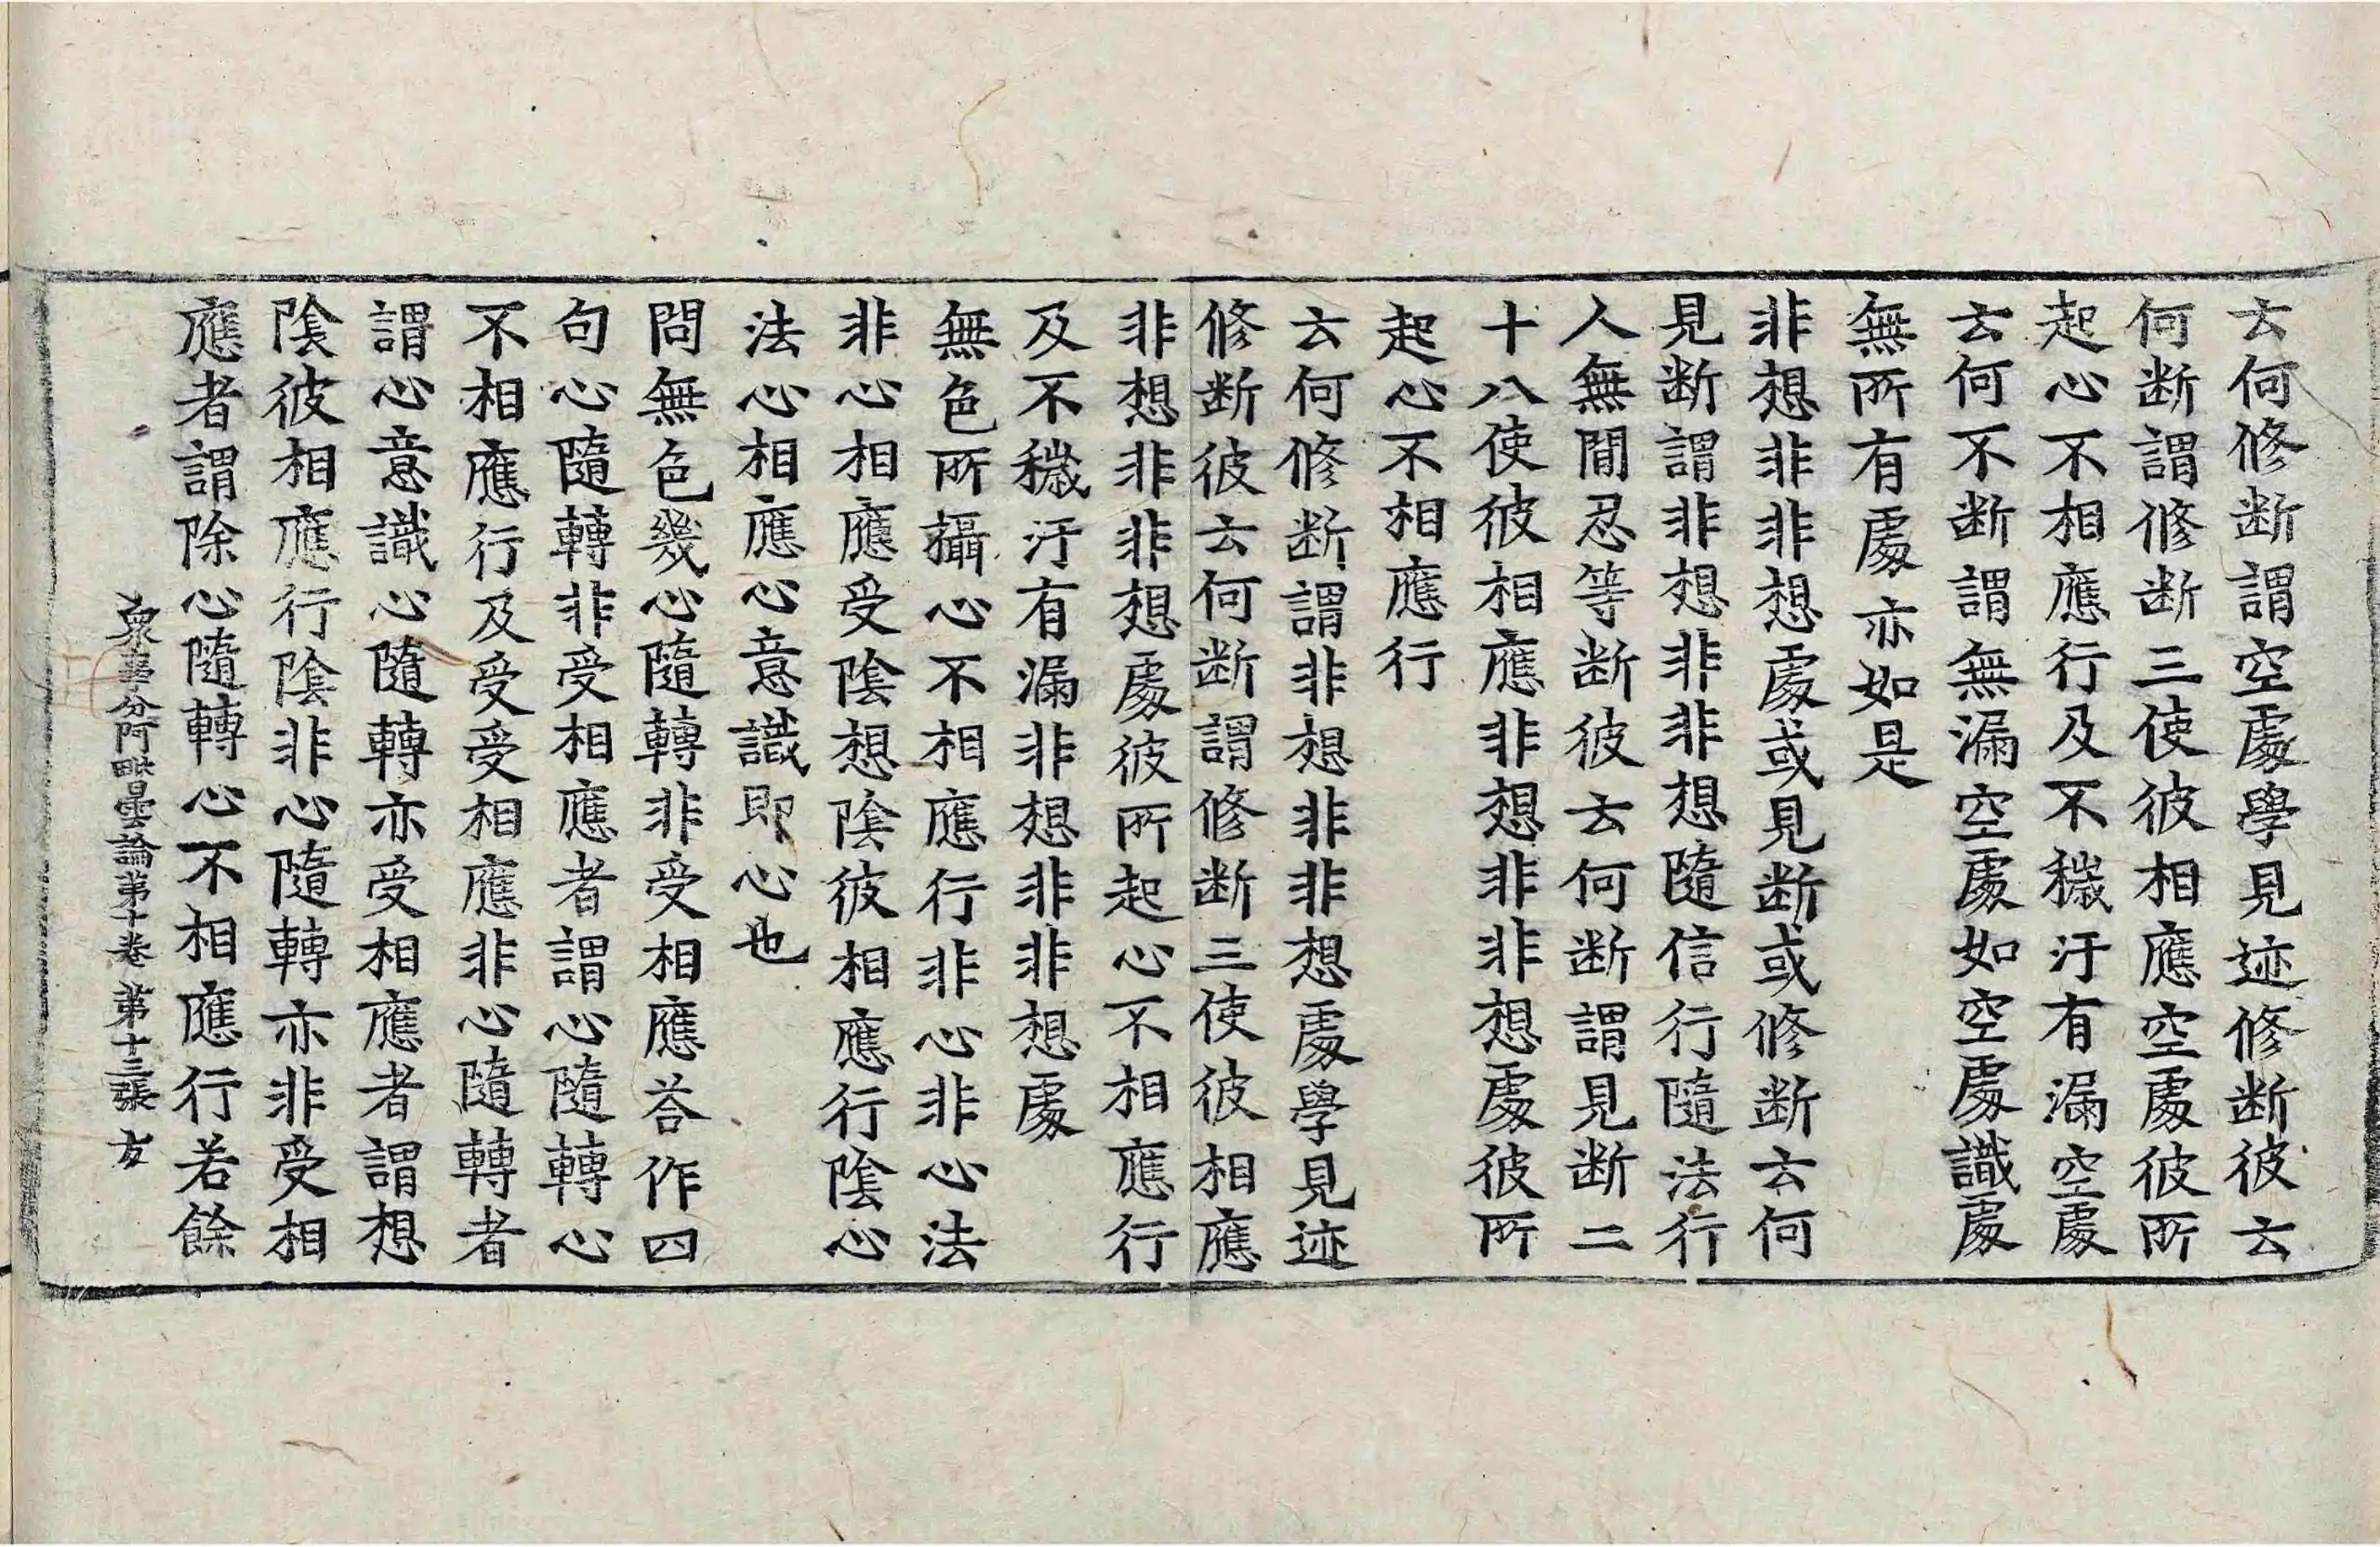 云何修断謂空處學見迹修断彼云
何断謂修断三使彼相應空處彼所
起心不相應行及不穢汙有漏空處
云何不断謂無漏空處如空處識處
無所有處亦如是
非想非非想處或見断或修断云何
見断謂非想非非想隨信行隨法行
人無間忍等断彼云何断謂見断二
十八使彼相應非想非非想處彼所
起心不相應行
云何修断謂非想非非想處學見迹
修断彼云何断謂修断三使彼相應
非想非非想處彼所起心不相應行
及不穢汙有漏非想非非想處
無色所攝心不相應行非心非心法
非心相應受陰想陰彼相應行陰心
法心相應心意識即心也
問無色幾心隨轉非受相應荅作四
句心隨轉非受相應者謂心隨轉心
不相應行及受受相應非心隨轉者
謂心意識心隨轉亦受相應者謂想
陰彼相應行陰非心隨轉亦非受相
應者謂除心隨轉心不相應行若餘
衆事分阿毗曇論第十卷 第十三張 友